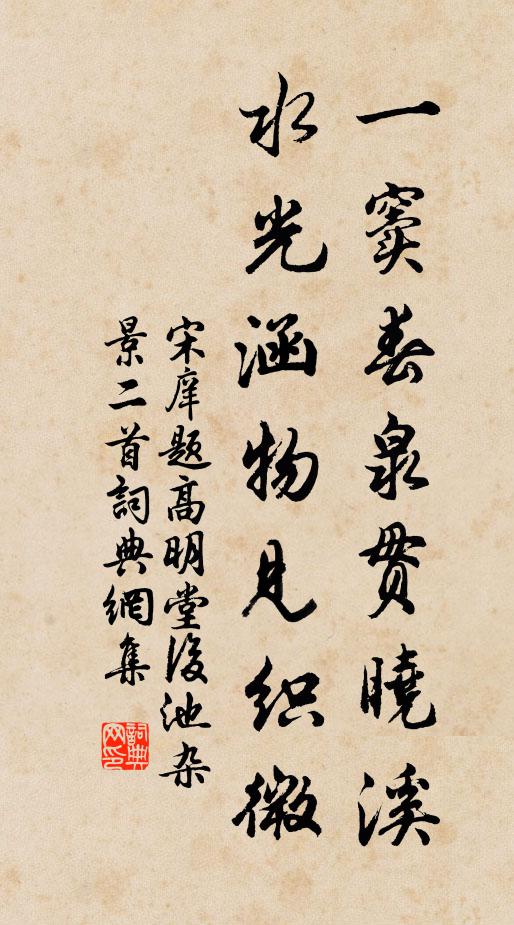 一窦春泉貫曉溪
水光涵物见织微
宋庠题高明堂後池杂
景二首詞典網集
詞典网印